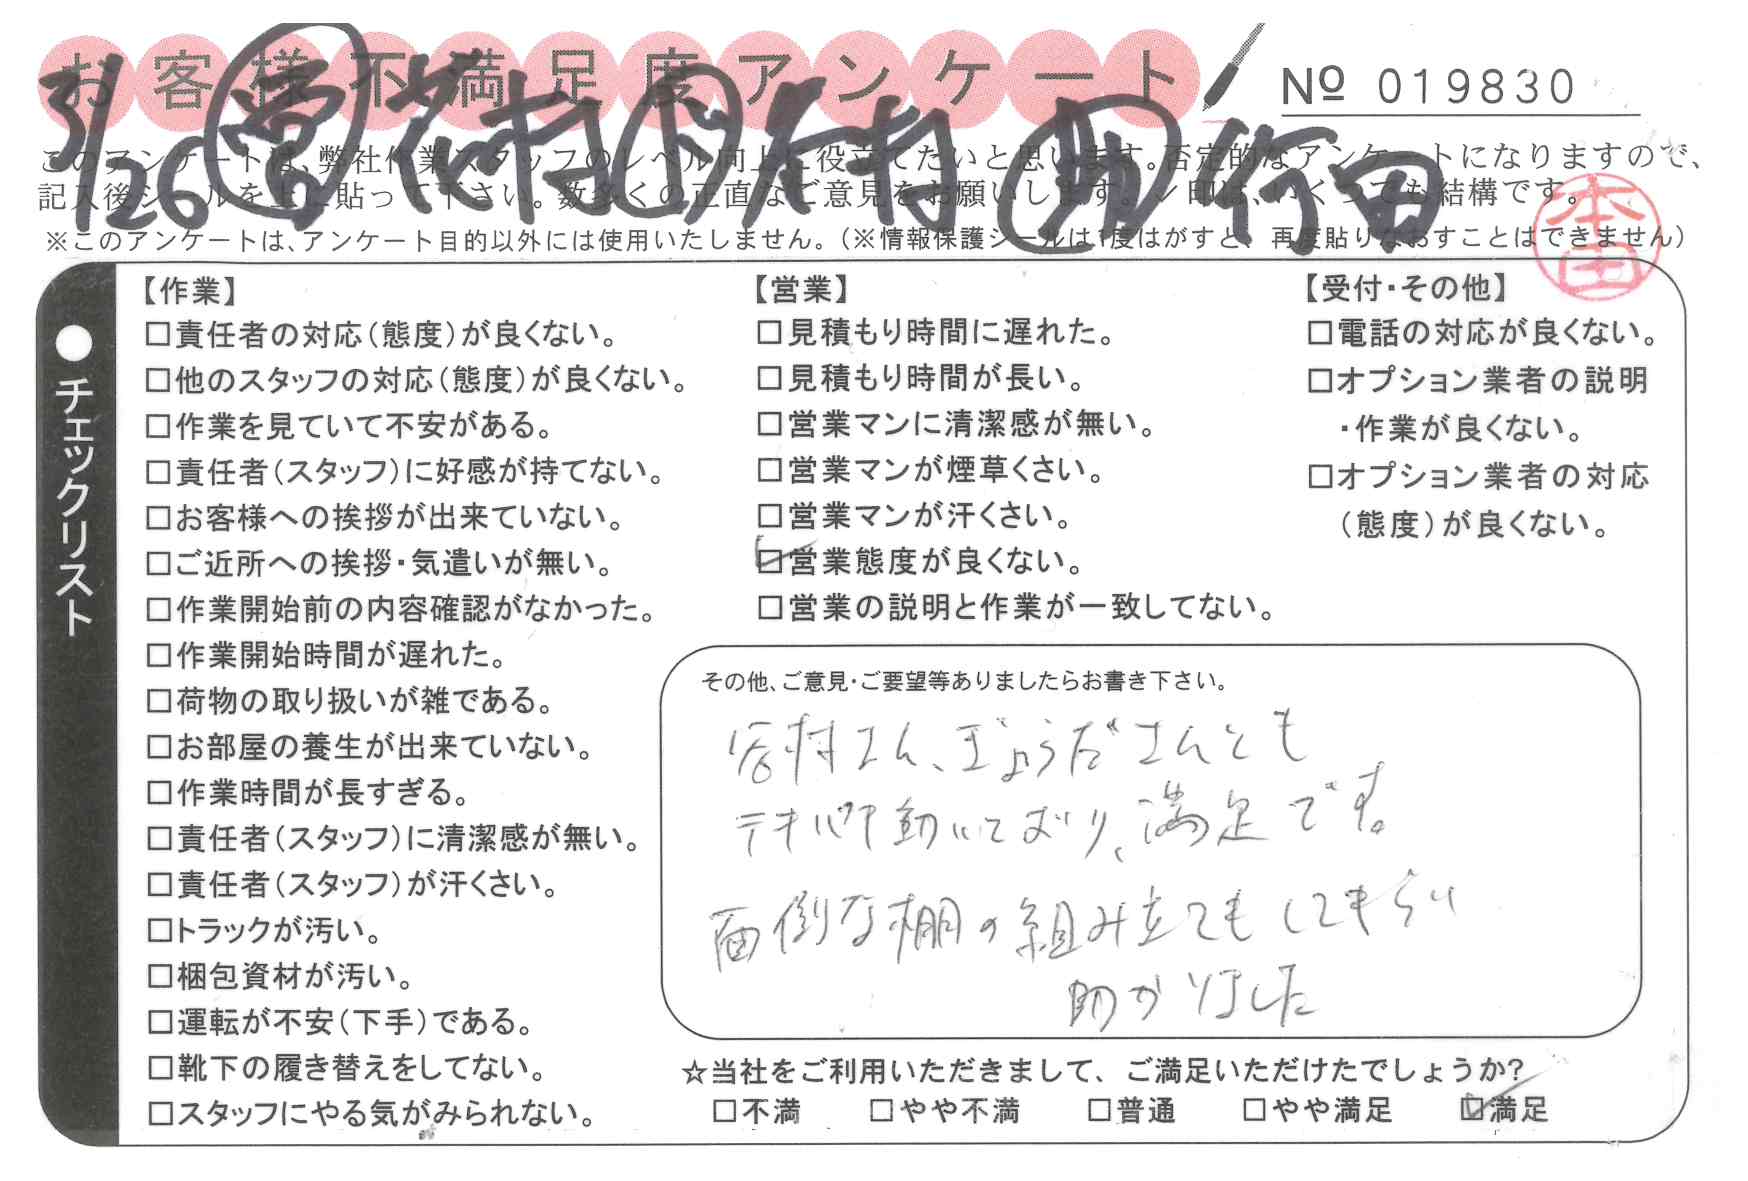 お客様不満足度アンケート
№ 019830
3/26 営 谷村 ド 谷村 助 行田
このアンケートは、弊社作業スタッフのレベル向上に役立てたいと思います。否定的なアンケートになりますので、
記入後シールを上に貼って下さい。数多くの正直なご意見をお願いします。✓印は、いくつでも結構です。
※このアンケートは、アンケート目的以外には使用いたしません。(※情報保護シールは1度はがすと、再度貼りなおすことはできません)
本田
●チェックリスト
【作業】
□責任者の対応(態度)が良くない。
□他のスタッフの対応(態度)が良くない。
□作業を見ていて不安がある。
□責任者(スタッフ)に好感が持てない。
□お客様への挨拶が出来ていない。
□ご近所への挨拶・気遣いが無い。
□作業開始前の内容確認がなかった。
□作業開始時間が遅れた。
□荷物の取り扱いが雑である。
□お部屋の養生が出来ていない。
□作業時間が長すぎる。
□責任者(スタッフ)に清潔感が無い。
□責任者(スタッフ)が汗くさい。
□トラックが汚い。
□梱包資材が汚い。
□運転が不安(下手)である。
□靴下の履き替えをしてない。
□スタッフにやる気がみられない。
【営業】
□見積もり時間に遅れた。
□見積もり時間が長い。
□営業マンに清潔感が無い。
□営業マンが煙草くさい。
□営業マンが汗くさい。
☑営業態度が良くない。
□営業の説明と作業が一致してない。
【受付・その他】
□電話の対応が良くない。
□オプション業者の説明
・作業が良くない。
□オプション業者の対応
(態度)が良くない。
その他、ご意見・ご要望等ありましたらお書き下さい。
谷村さん、ぎょうださんとも
テキパキ動いており、満足です。
面倒な棚の組み立てもしてもらい
助かりました
☆当社をご利用いただきまして、ご満足いただけたでしょうか?
□不満 □やや不満 □普通 □やや満足 ☑満足